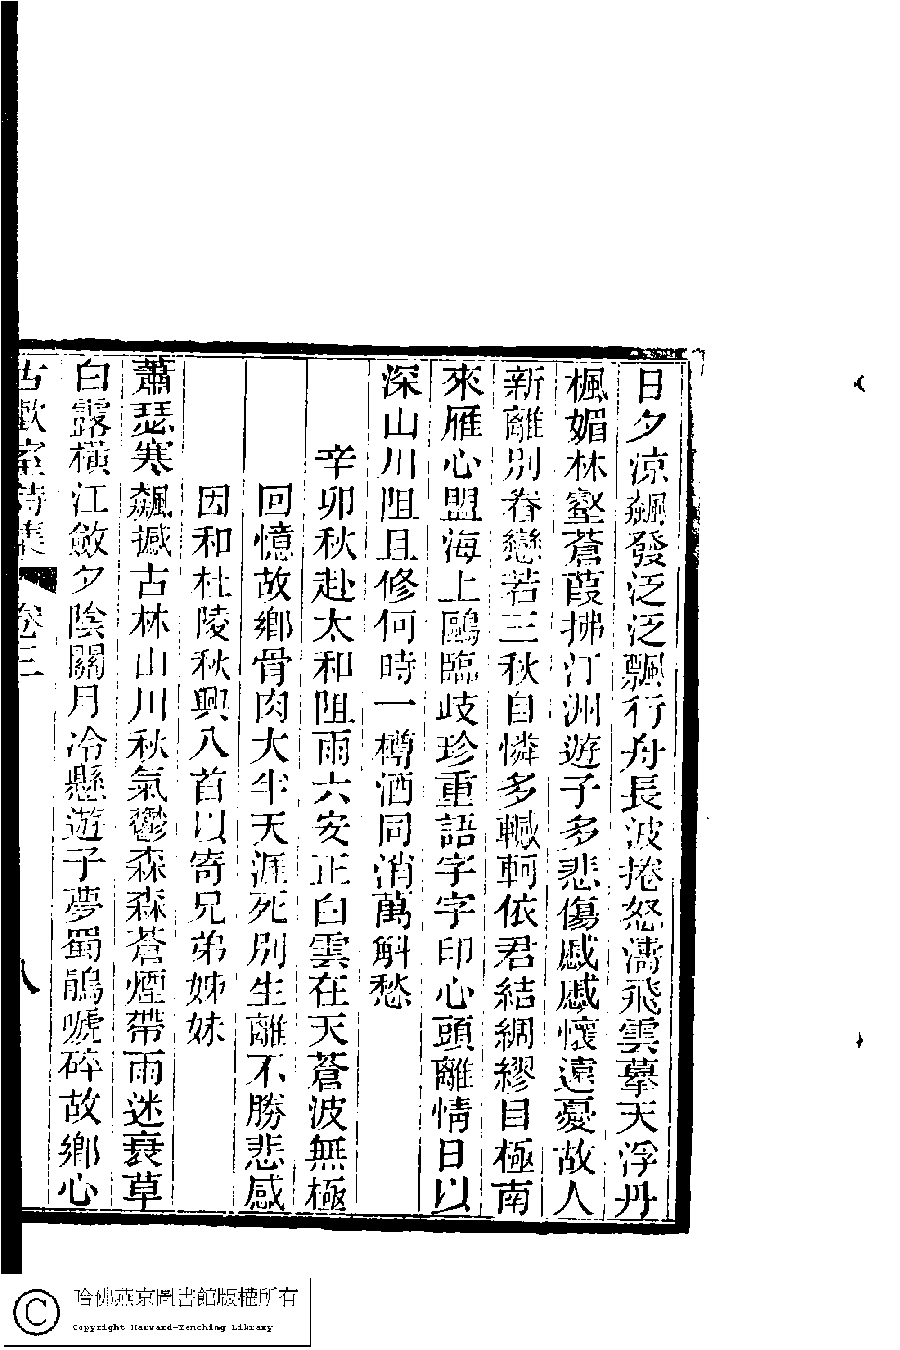 日夕涼飆發泛泛飄行舟長波捲怒濤飛雲摹天浮丹
楓媚林壑蒼葭拂汀洲遊子多悲傷慼慼懷遠憂故人
新離別眷戀若三秋自憐多轗軻依君結綢繆目極南
來雁心盟海上鷗臨歧珍重語字字印心頭離情日以
深山川阻且修何時一樽酒同消萬斛愁
辛卯秋赴太和阻雨六安正白雲在天蒼波無極
回憶故鄉骨肉大半天涯死別生離不勝悲感
因和杜陵秋興八首以寄兄弟姊妹
蕭瑟寒飆撼古林山川秋氣鬱森森蒼煙帶雨迷衰草
白露橫江斂夕陰關月冷懸遊子夢蜀鵑啼碎故鄉心
古歡室詩集 卷三 八
哈佛燕京圖書館版權所有
Copyright Harvard-Yenching Library